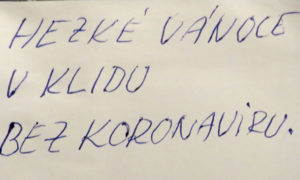 HEZKÉ VÁNOCE
V KLIDU
BEZ KORONAVIRU.